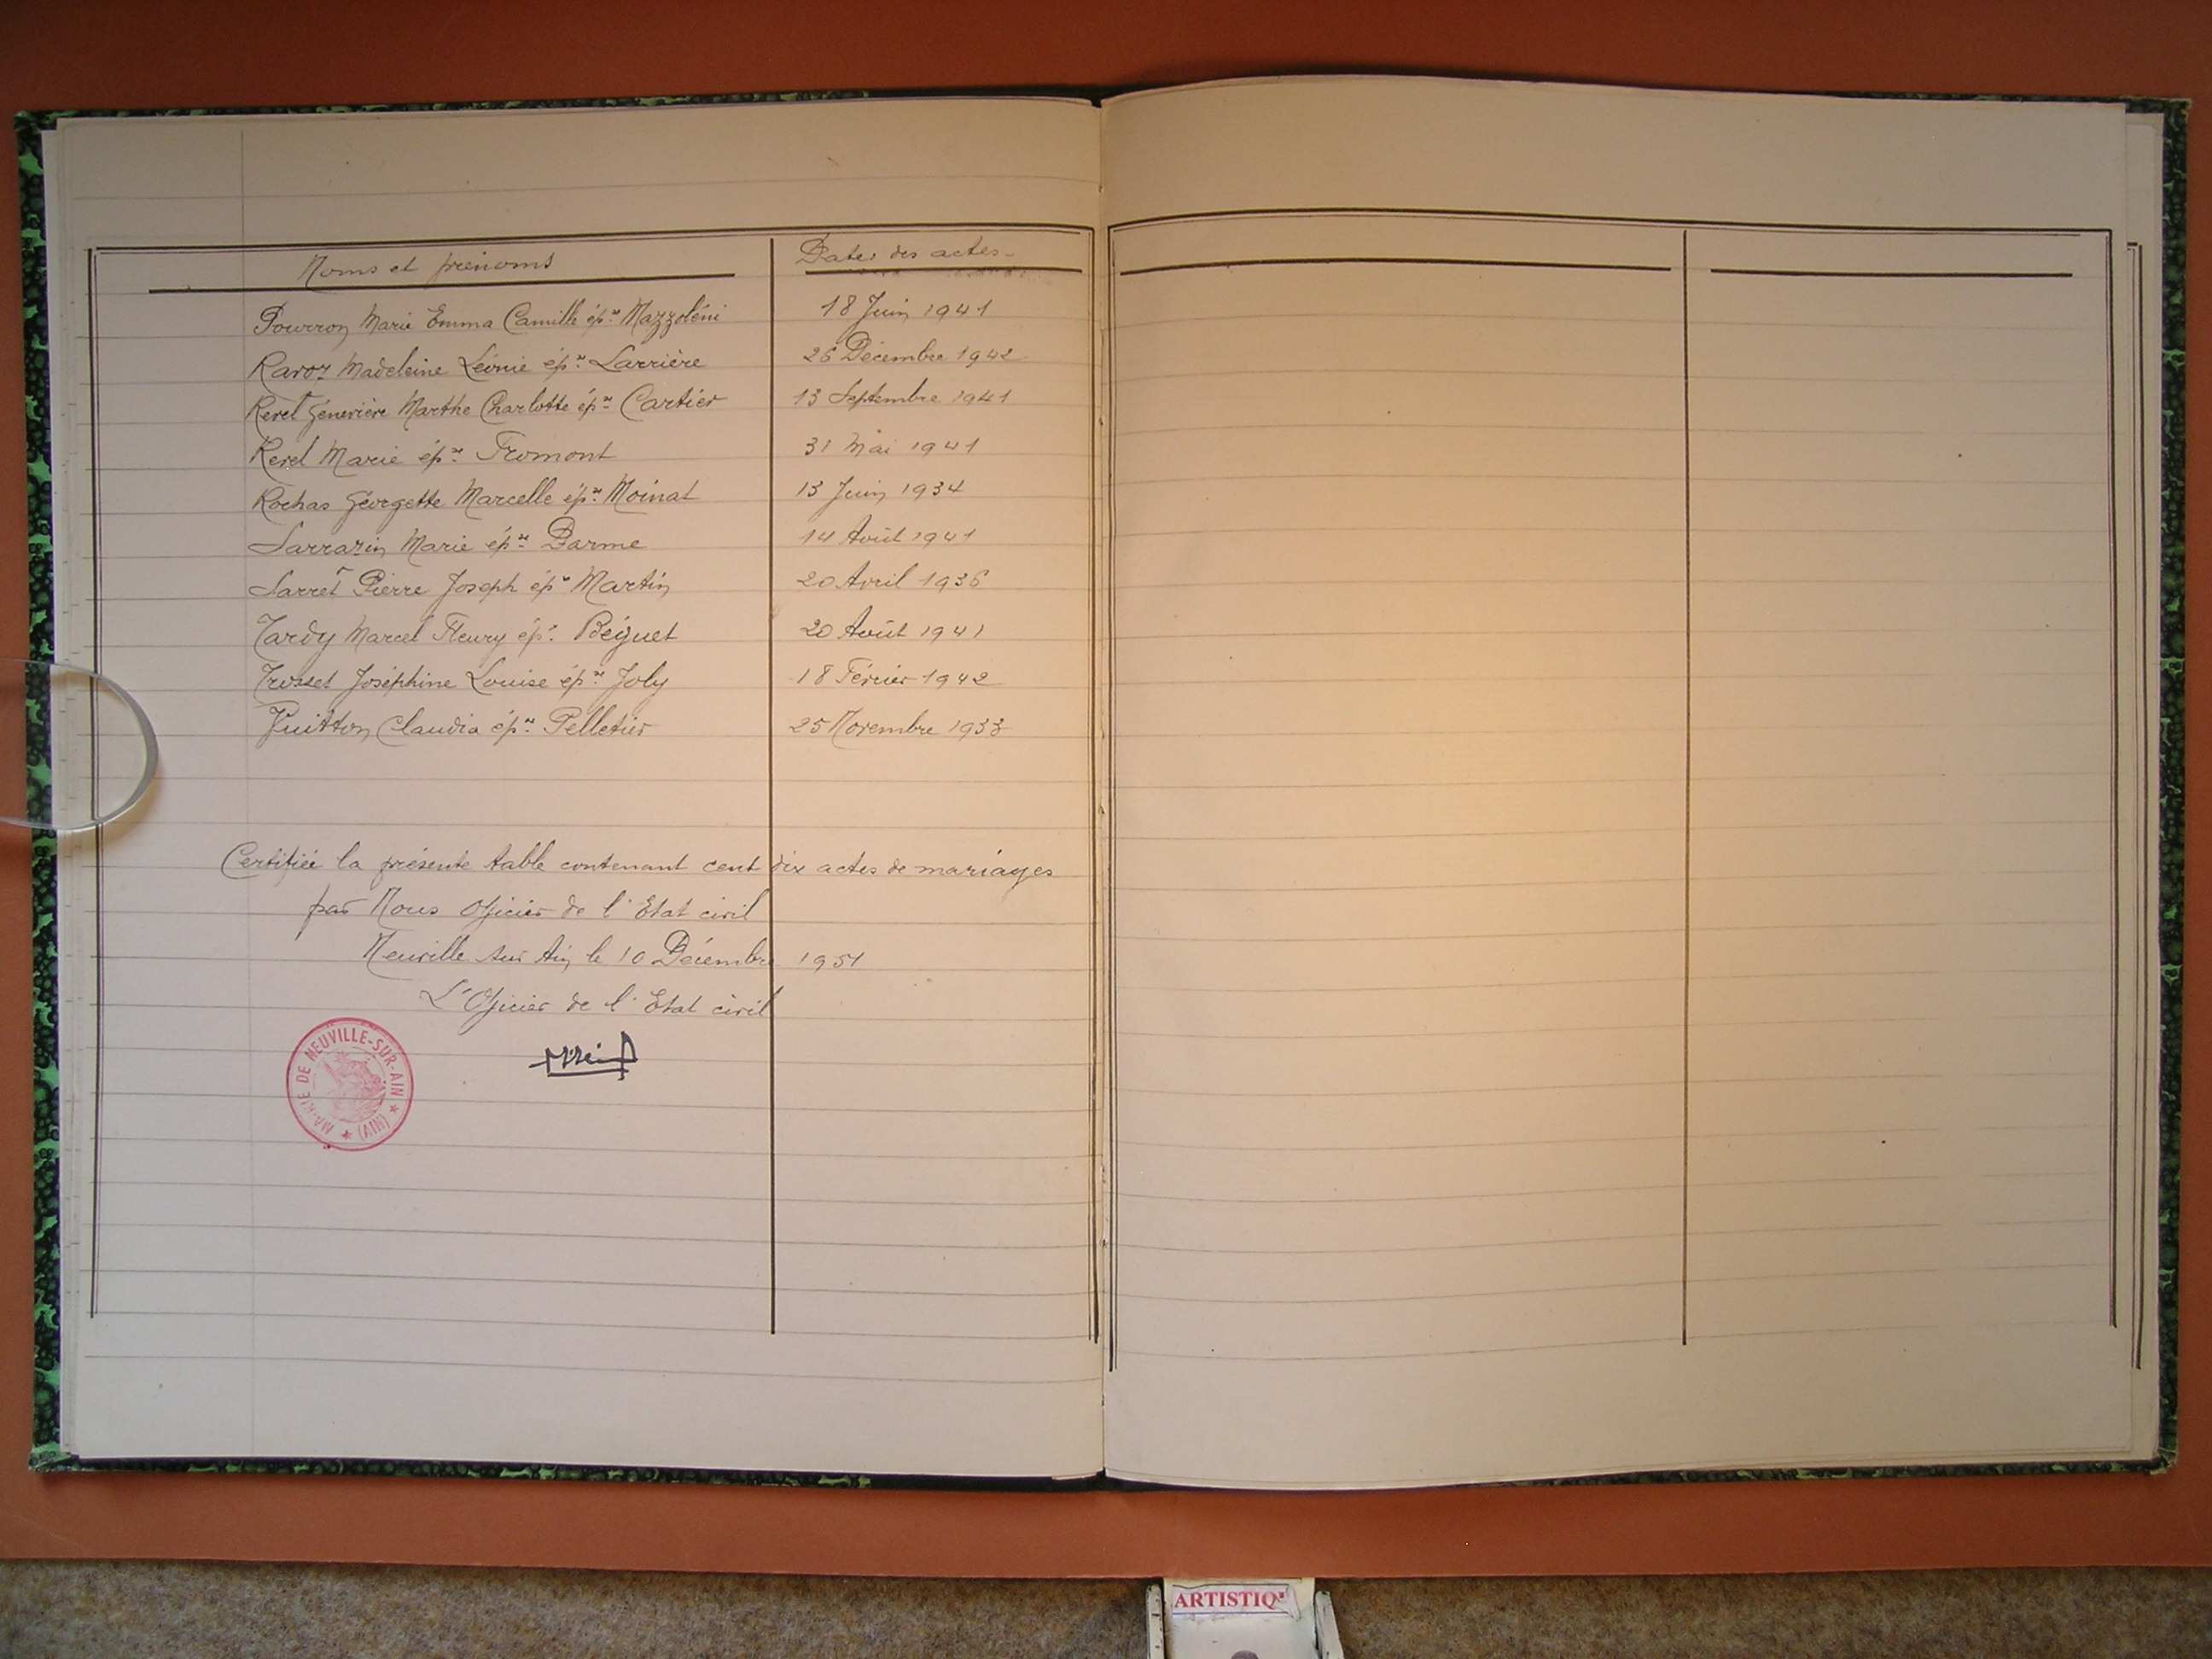 Noms et prénoms Dates des actes-
Pourron Marie Emma Camille épse Mazzoléni 18 Juin 1941
Ravoz Madeleine Léonie épse Larrière 26 Décembre 1942
Revel Géneviève Marthe Charlotte épse Cartier 13 Septembre 1941
Revel Marie épse Fromont 31 Mai 1941
Rochas Géorgette Marcelle épse Moinat 13 Juin 1934
Sarrazin Marie épse Darme 14 Août 1941
Sarret Pierre Joseph épx Martin 20 Avril 1936
Tardy Marcel Fleury épx Béguet 20 Août 1941
Trosset Joséphine Louise épse Joly 18 Février 1942
Vuitton Claudia épse Pelletier 25 Novembre 1933
Certifiée la présente table contenant cent dix actes de mariages
par Nous Officier de l'Etat civil
Neuville sur Ain le 10 Décembre 1951
L'Officier de l'Etat civil
MAIRIE DE NEUVILLE-SUR-AIN ★ (AIN) ★
ARTISTIQ